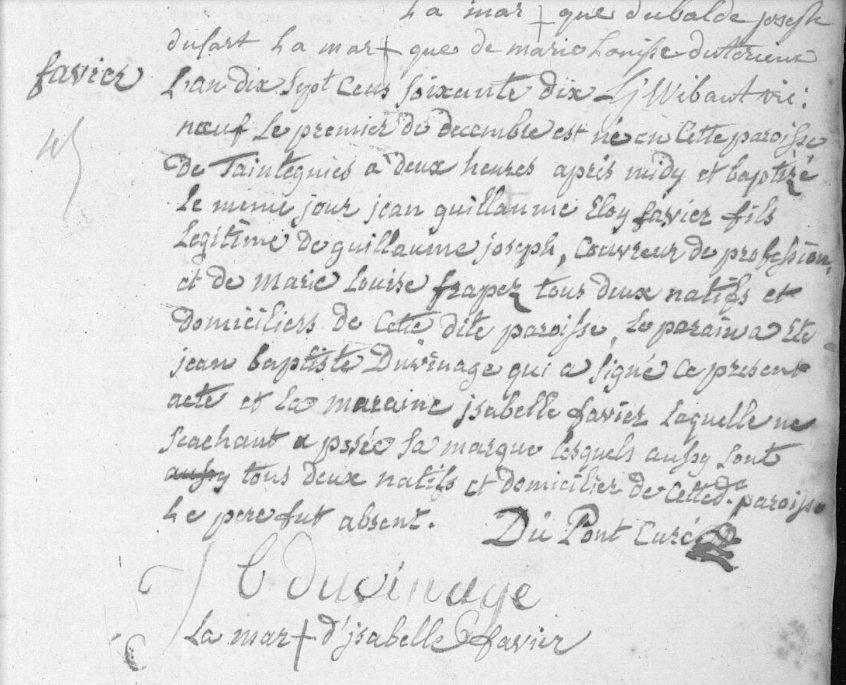 La mar + que dubalde joseph
dufart La mar + que de marie Louisse duterieux
favier
L'an dix sept Cens soixante dix Lj Wibaut vic:
nœuf Le premier de decembre est né en Cette paroisse
De Taintegnies a deux heures après midy et baptizé
Le meme jour jean guillaume Eloy favier fils
Legitime de guillaume joseph, Couvreur de profession,
et de marie Louise frapez tous deux natifs et
domiciliers de Cette dite paroisse, Le parain a Eté
jean baptiste Duvinage qui a signé Ce present
acte et La maraine jsabelle favier Laquelle ne
scachant a posée sa marque lesquels aussy sont
aussy tous deux natifs et domicilier de Cette de. paroisse
Le pere fut absent. Du Pont Curé
duvinage
La mar + d'jsabelle favier